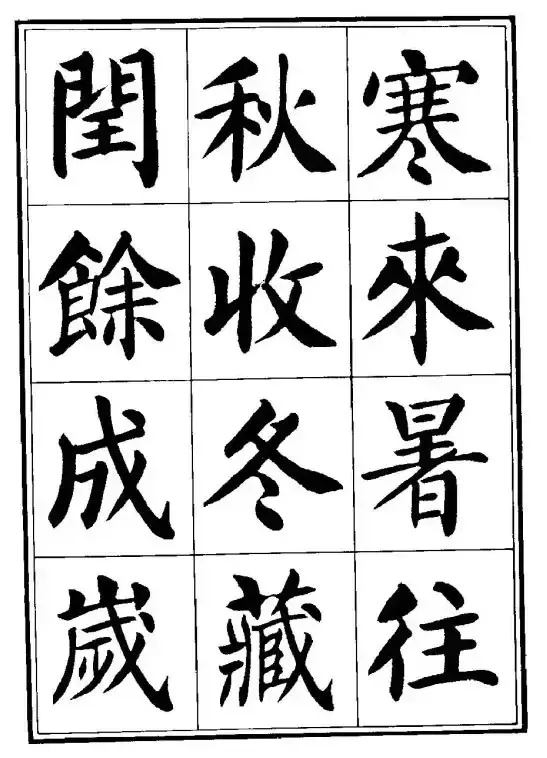 寒來暑往
秋收冬藏
閏餘成歲